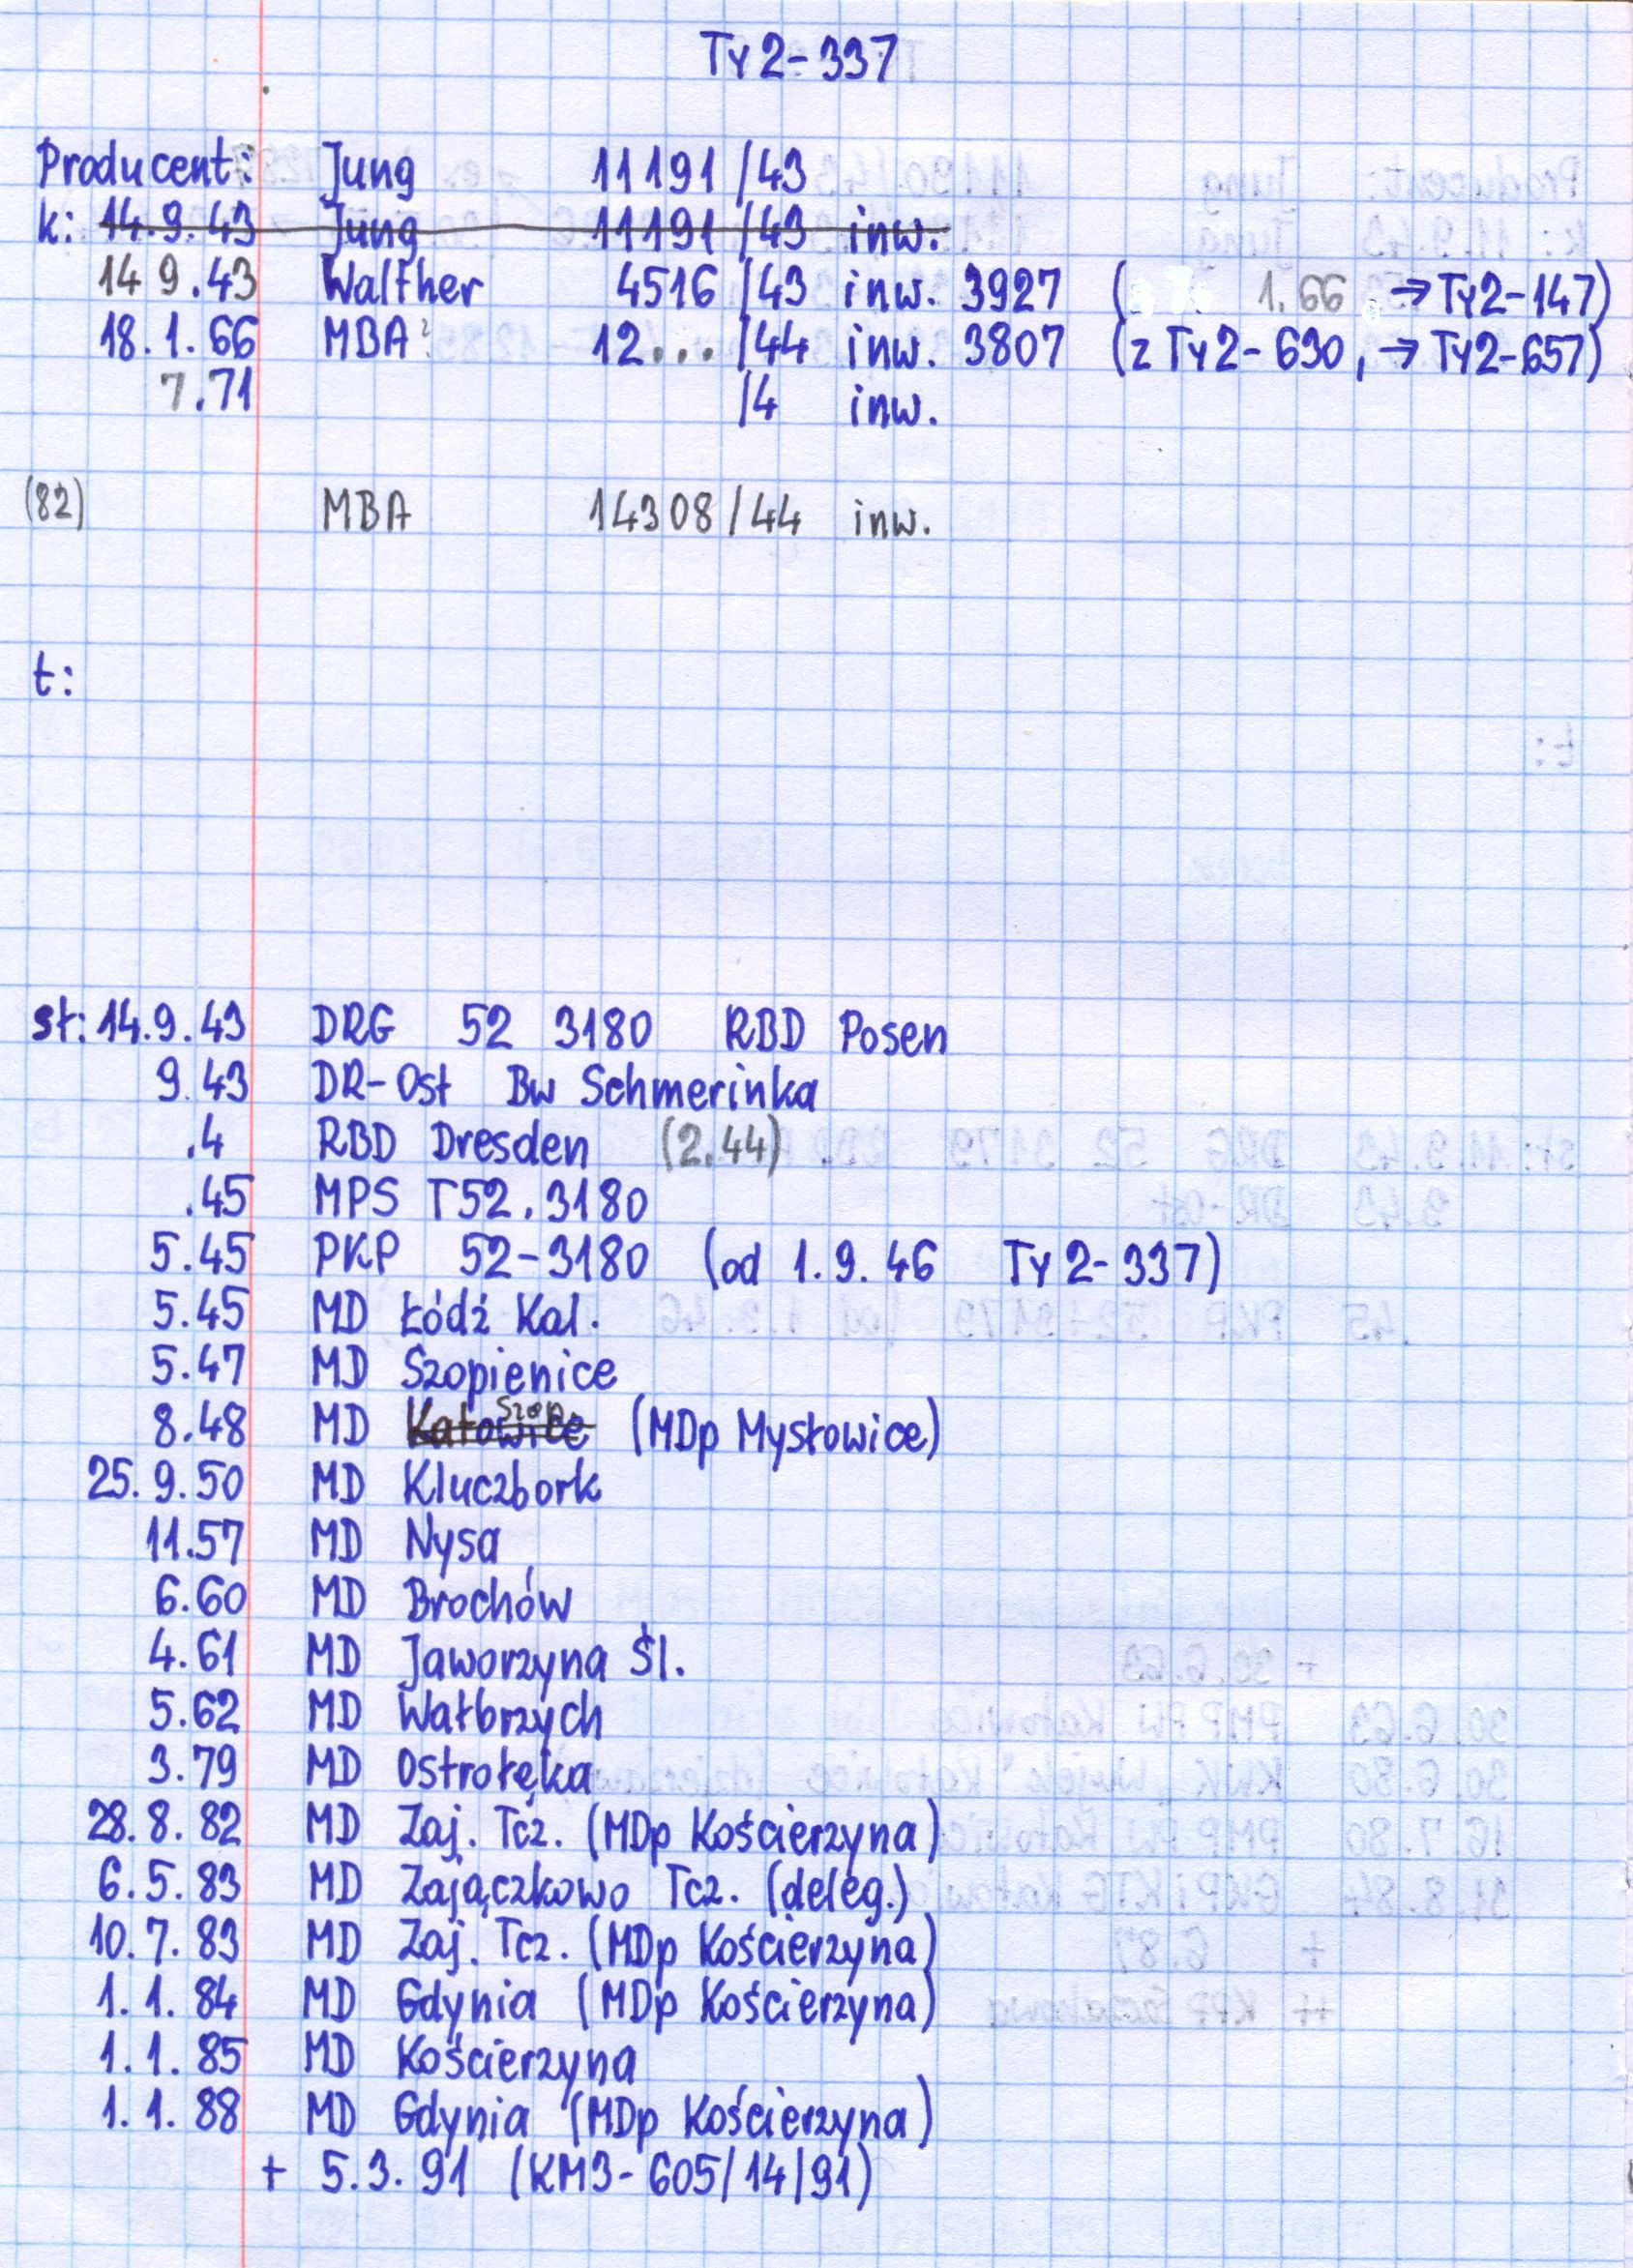 Ty2-337
Producent: Jung 11191/43
k: 14.9.43 Jung 11191/43 inw.
14 9.43 Walther 4516/43 inw. 3927 ( 1.66, → Ty2-147)
18.1.66 MBA? 12.../44 inw. 3807 (z Ty2-630, → Ty2-657)
7.71 /4 inw.
(82) MBA 14308/44 inw.
t:
st: 14.9.43 DRG 52 3180 RBD Posen
9.43 DR-Ost Bw Schmerinka
.4 RBD Dresden (2.44)
.45 MPS T52.3180
5.45 PKP 52-3180 (od 1.9.46 Ty2-337)
5.45 MD Łódź Kal.
5.47 MD Szopienice
8.48 MD Katowice Szop. (MDp Mysłowice)
25.9.50 MD Kluczbork
11.57 MD Nysa
6.60 MD Brochów
4.61 MD Jaworzyna Śl.
5.62 MD Wałbrzych
3.79 MD Ostrołęka
28.8.82 MD Zaj. Tcz. (MDp Kościerzyna)
6.5.83 MD Zajączkowo Tcz. (deleg.)
10.7.83 MD Zaj. Tcz. (MDp Kościerzyna)
1.1.84 MD Gdynia (MDp Kościerzyna)
1.1.85 MD Kościerzyna
1.1.88 MD Gdynia (MDp Kościerzyna)
+ 5.3.91 (KM3-605/14/91)